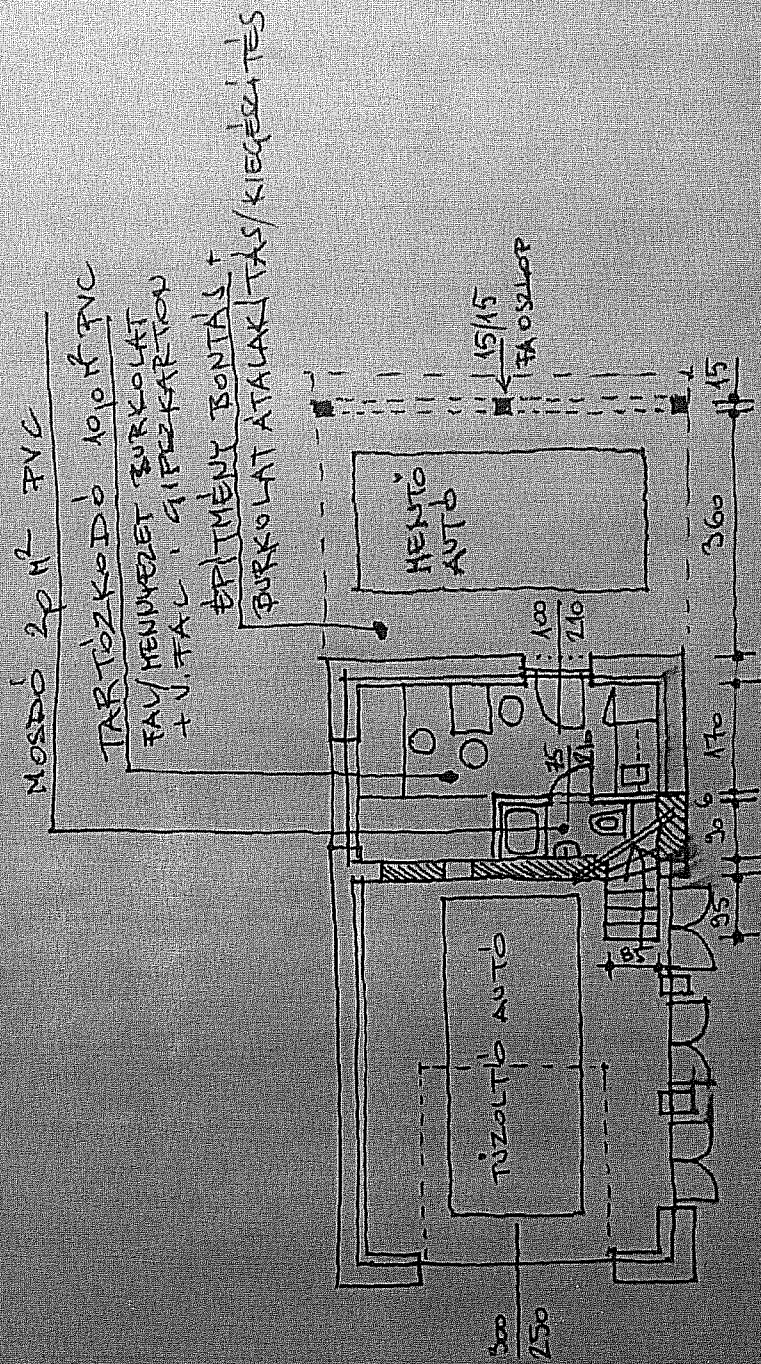 MOSDÓ 2,0 M² PVC
TARTÓZKODÓ 10,0 M² PVC
FAL/MENNYEZET BURKOLAT
+ V. FAL : GIPSZKARTON
ÉPÍTMÉNY BONTÁS +
BURKOLAT ÁTALAKÍTÁS/KIEGÉSZÍTÉS
15/15
FA OSZLOP
MENTŐ
AUTÓ
100
210
75
210
TŰZOLTÓ AUTÓ
300
250
85
95
90
6
170
360
15